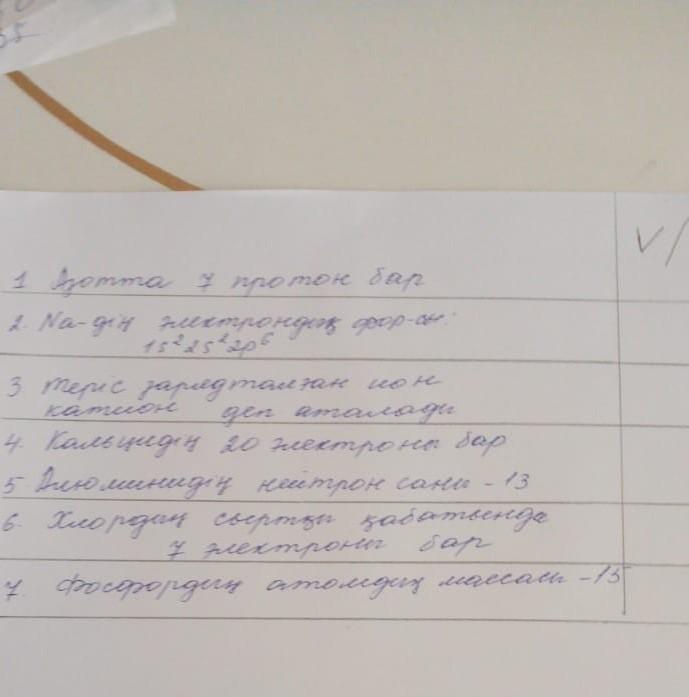 35
V /
1 Азотта 7 протон бар
2. Na-дің электрондық фор-сы:
1s² 2s² 2p⁶
3 теріс зарядталған ион
катион деп аталады
4. Кальцидің 20 электроны бар
5 Алюминидің нейтрон саны - 13
6. Хлордың сыртқы қабатында
7 электроны бар
7. Фосфордың атомдық массасы - 15